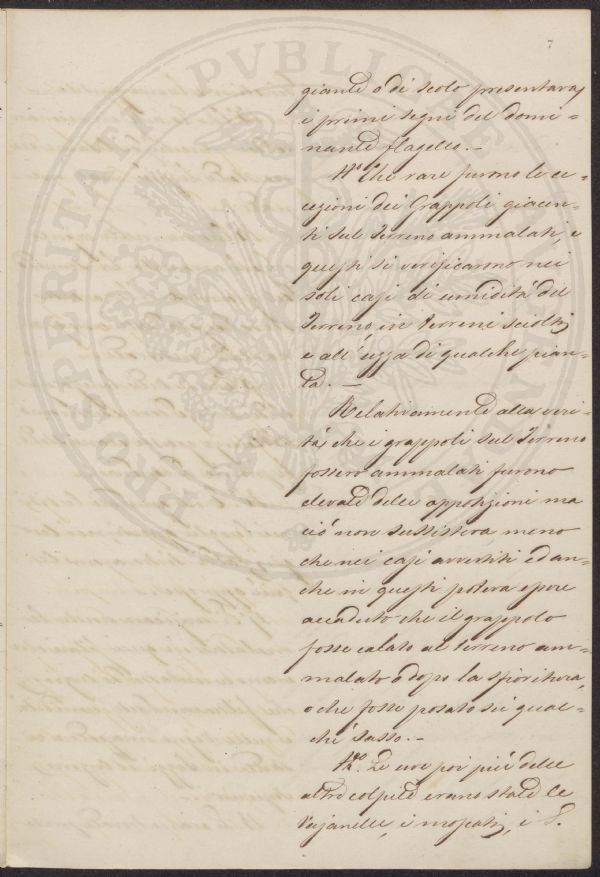 7
giante o di scolo presentava
i primi segni del domi-
nante flagello.-
N.° Che rare furono le ec-
cezioni dei Grappoli giacen-
ti sul Terreno ammalati, e
questi si verificarono nei
soli casi di umidità del
Terreno, in terreni sciolti,
e all'uggia di qualche pian-
ta.-
Relativamente alla veri-
tà, che i grappoli sul Terreno
fossero ammalati furono
elevate delle opposizioni ma
ciò non sussisteva, meno
che nei casi avvertiti ed an-
che in questi poteva essere
accaduto che il grappolo
fosse calato al terreno am-
malato o dopo la sfioritura,
o che fosse posato su qual-
che sasso.-
N.° Le uve poi più delle
altre colpite erano state le
Vajanelle, i moscati, i S.
PROSPERITATI PVBLICAE